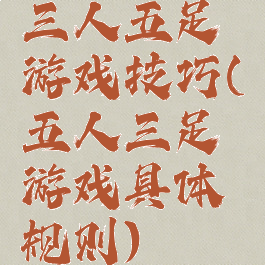 三人五足
游戏技巧(
五人三足
游戏具体
规则)